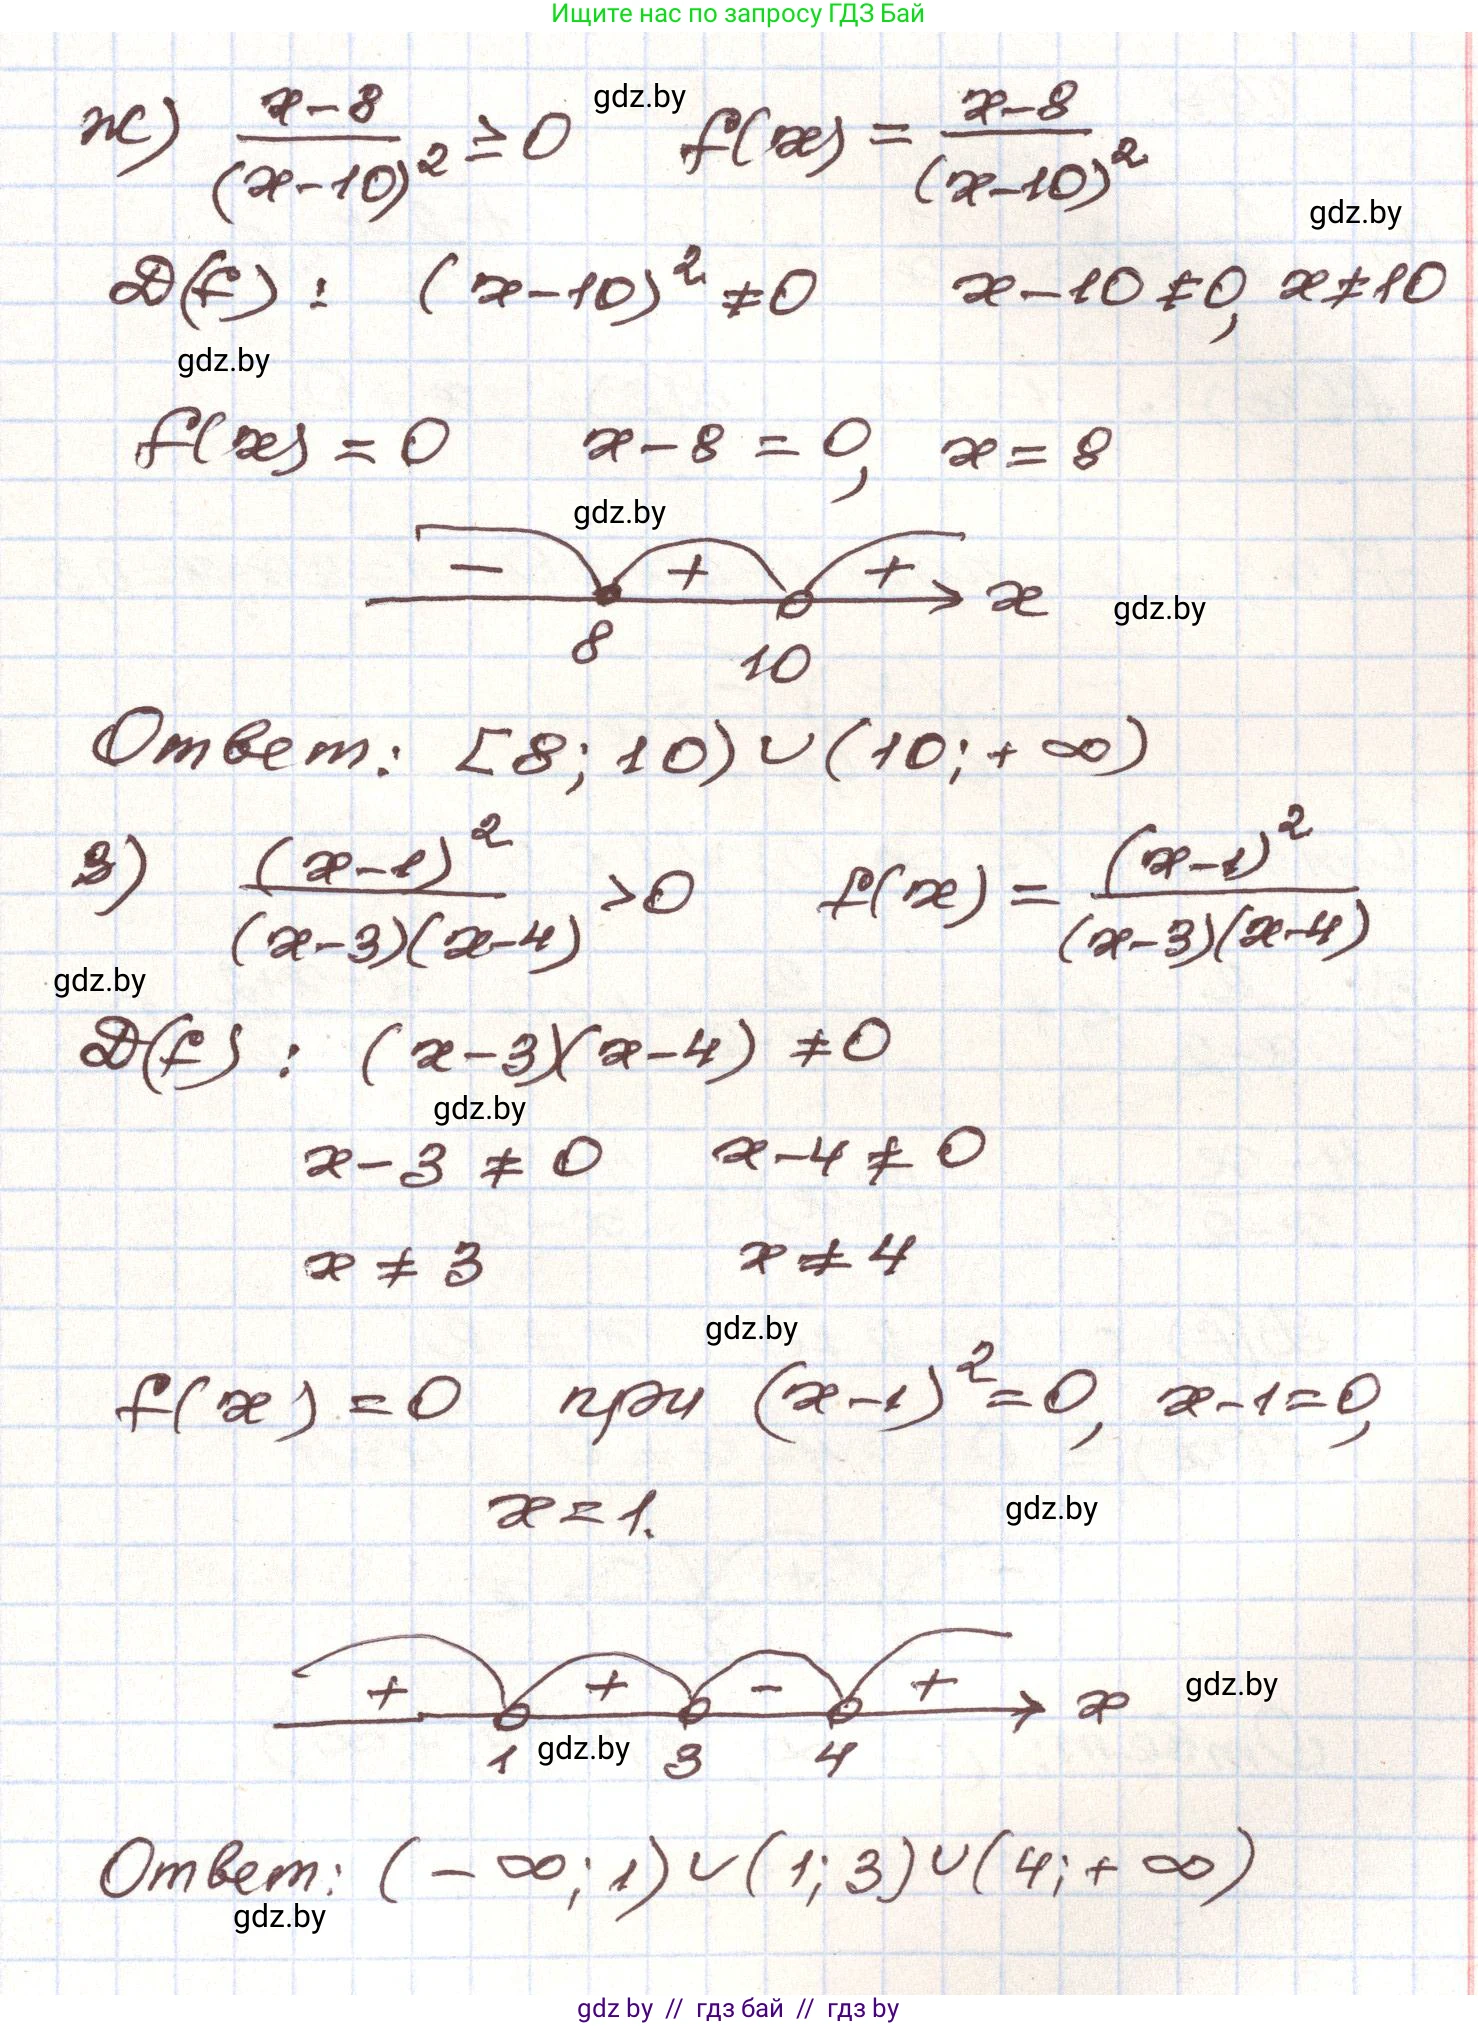 Ищите нас по запросу ГДЗ Бай
ж) (x-8)/(x-10)² ≥ 0   f(x) = (x-8)/(x-10)²
gdz.by
gdz.by
D(f) : (x-10)² ≠ 0   x-10 ≠ 0, x ≠ 10
gdz.by
f(x) = 0   x-8 = 0, x = 8
gdz.by
- + + x
gdz.by
8 10
Ответ: [8; 10) ∪ (10; +∞)
з) (x-1)²/((x-3)(x-4)) > 0   f(x) = (x-1)²/((x-3)(x-4))
gdz.by
D(f) : (x-3)(x-4) ≠ 0
gdz.by
x-3 ≠ 0   x-4 ≠ 0
x ≠ 3   x ≠ 4
gdz.by
f(x) = 0 при (x-1)² = 0, x-1 = 0,
x = 1.
gdz.by
+ + - + x
gdz.by
1 3 4
gdz.by
Ответ: (-∞; 1) ∪ (1; 3) ∪ (4; +∞)
gdz.by
gdz by // гдз бай // гдз by